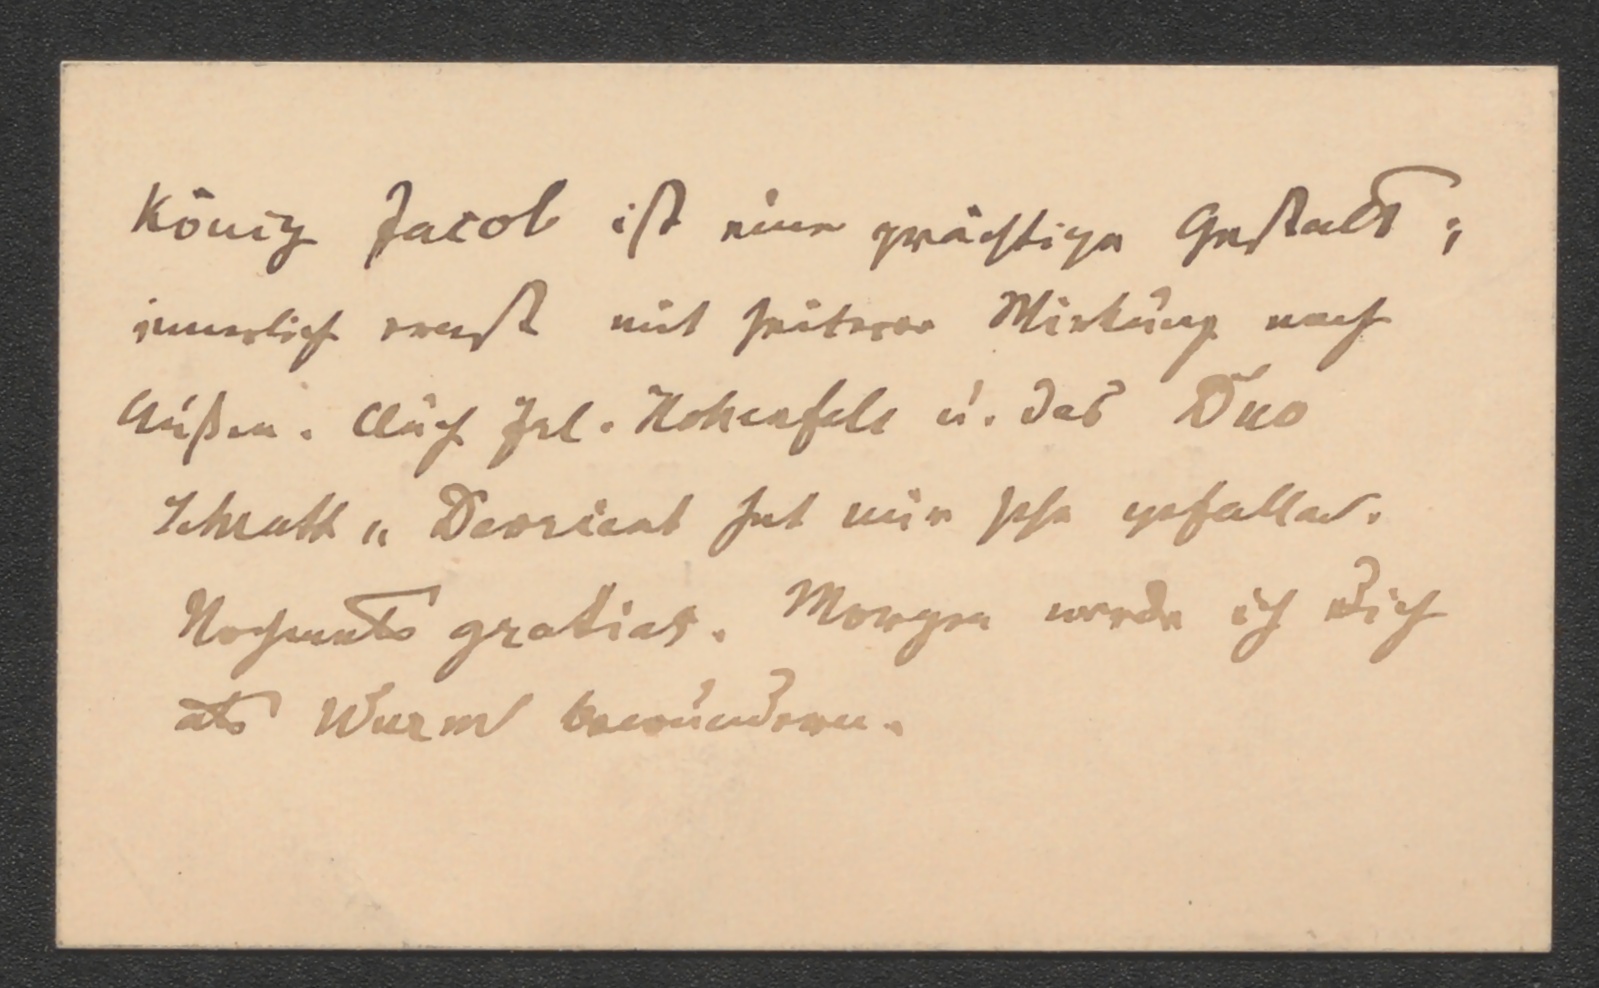 König Jacob ist eine prächtige Gestalt;
innerlich ernst mit heiterer Wirkung nach
Außen. Auch Frl. Hohenfels u. das Duo
Schratt " Devrient hat mir sehr gefallen.
Nochmals gratias. Morgen werde ich Dich
als Wurm bewundern.